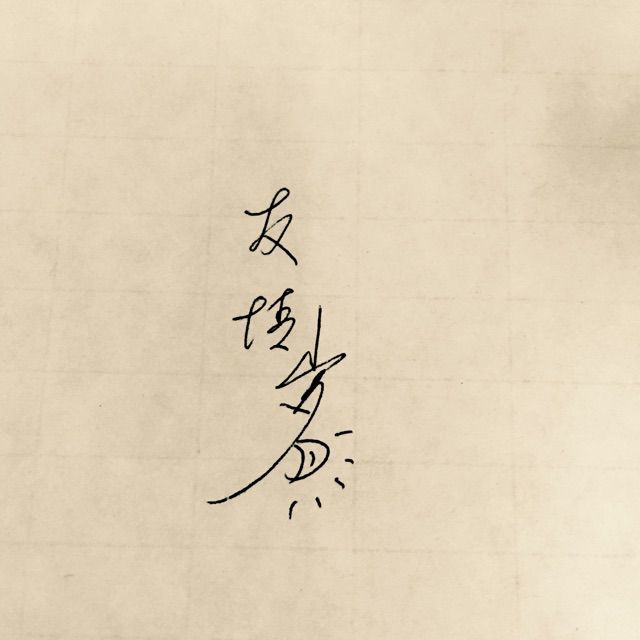 友情岁月